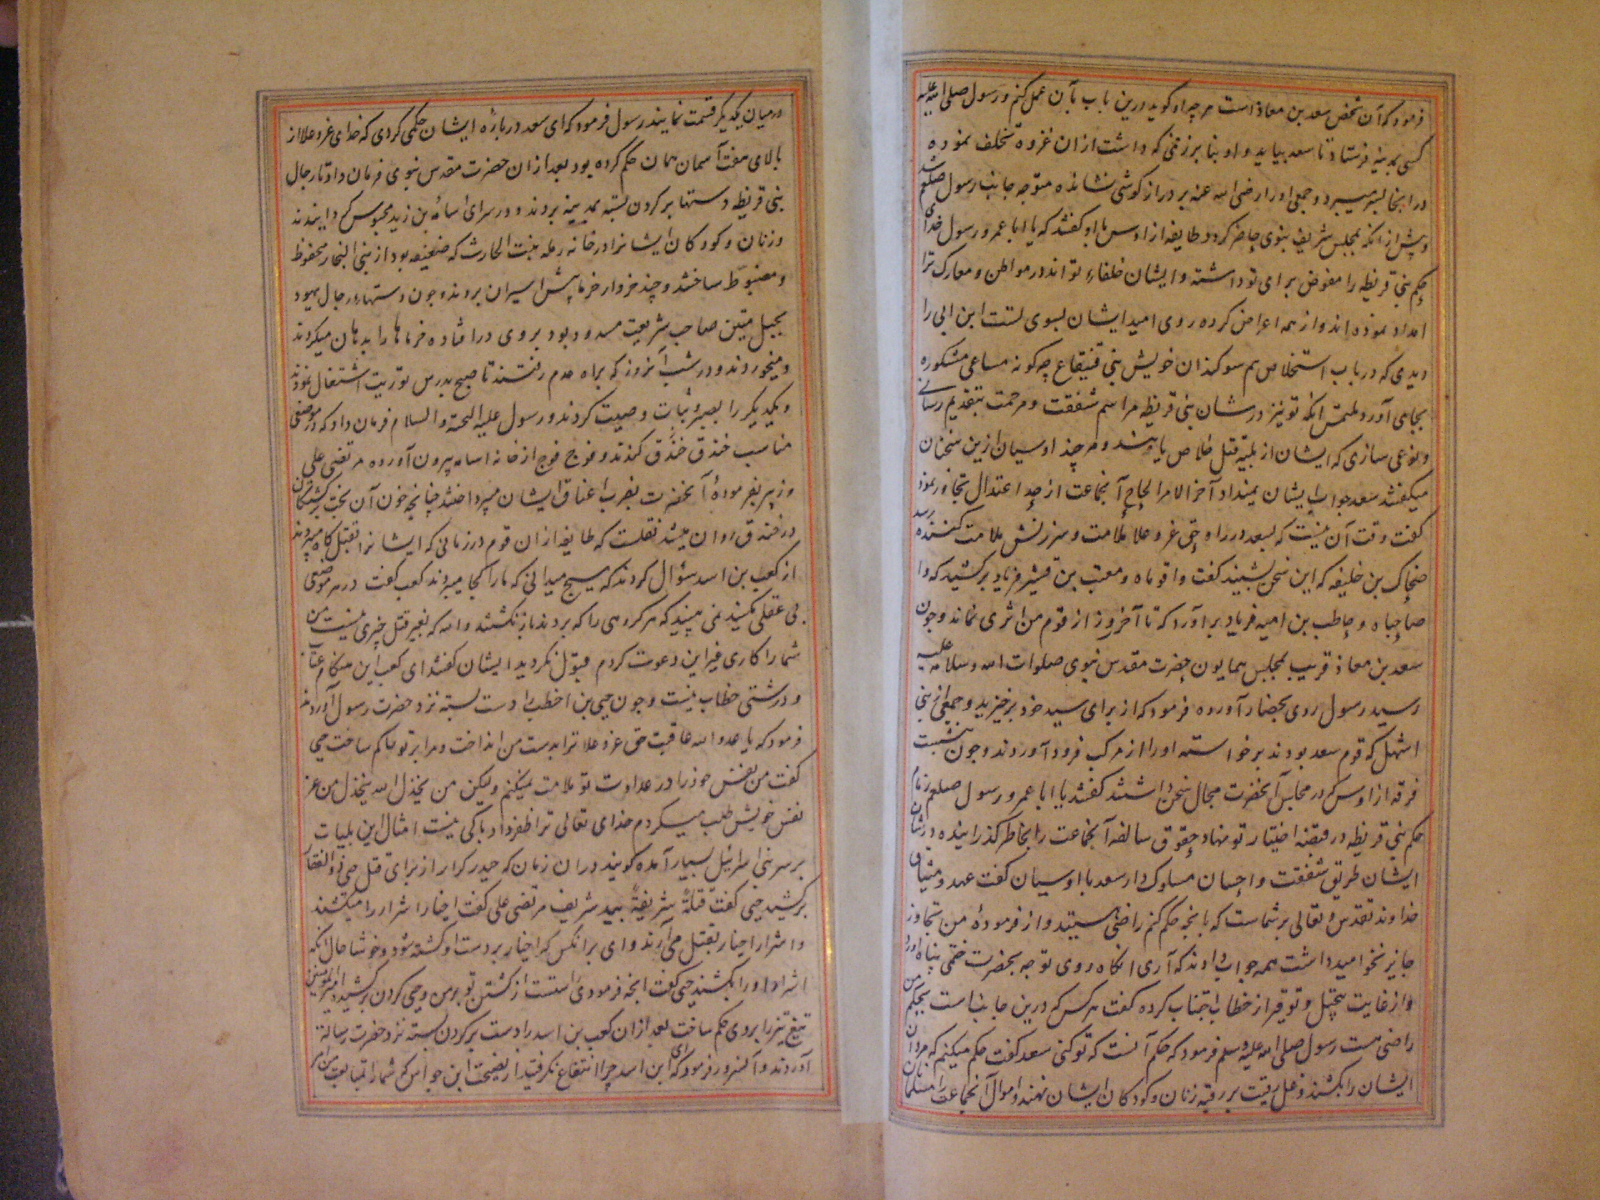 فرمود که آن شخص سعد بن معاذ است هر چه او گوید درین باب بآن عمل کنم و رسول صلی الله علیه
کسی بمدینه فرستاد تا سعد بیاید و او بنا بر زخمی که داشت از ان غزوه تخلف نموده
در انجا بسر میبرد و جمعی او را رضی الله عنه بر دراز گوشی نشانده متوجه جانب رسول صلعم شد
و پیش از انکه بمجلس شریف نبوی حاضر کردد طایفه از اوس با او گفتند که یا ابا عمرو رسول خدای
حکم بنی قریظه را مفوض برای تو داشته و ایشان خلفاء تو اند در مواطن و معارک ترا
امداد نموده اند و از همه اعراض کرده روی امید ایشان بسوی تست ابن ابی را
دیدی که در باب استخلاص هم سوکندان خویش بنی قینقاع چه کونه مساعی مشکوره
بجای آورد ملتمس انکه تو نیز در شان بنی قریظه مراسم شفقت و مرحمت بتقدیم رسانی
و نوعی سازی که ایشان از بلیه قتل خلاص یابند و هر چند اوسیان ازین سخنان
میکفتند سعد جواب ایشان نمیداد آخر الامر الحاح آنجماعت از حد اعتدال تجاوز نمود
گفت وقت آن نیست که بسعد در راه حق عز و علا ملامت و سرزنش ملامت کننده رسد
ضحاک بن خلیفه که این سخن بشنید گفت وا قوماه و معتب بن قشیر فریاد بر کشید که وا
صاحباه و حاطب بن امیه فریاد بر آورد که تا آخر روز از قوم من اثری نماند و چون
سعد بن معاذ قریب بمجلس همایون حضرت مقدس نبوی صلوات الله و سلامه علیه
رسید رسول روی بحضار آورده فرمود که از برای سید خود بر خیزید و جمعی از بنی
اشهل که قوم سعد بودند بر خواسته او را از مرکب فرود آوردند و چون بنشست
فرقه از اوس که در مجلس آنحضرت مجال سخن داشتند گفتند یا ابا عمرو رسول صلعم زمام
حکم بنی قریظه در قبضه اختیار تو نهاد حقوق سالفه آنجماعت را بخاطر گذرانیده در شان
ایشان طریق شفقت و احسان مسلوک دار سعد با اوسیان گفت عهد و میثاق
خداوند تقدس و تعالی بر شماست که بانچه حکم کنم راضی هستید و از فرموده من تجاوز
جایز نخواهید داشت همه جواب دادند که آری انکاه روی توجه بحضرت ختمی پناه آورد
و از غایت تبجیل و توقیر از خطاب اجتناب کرده گفت هر کس که درین جانب است بحکم من
راضی هست رسول صلی الله علیه وسلم فرمود که حکم آنست که تو کنی سعد گفت حکم میکنم که مردان
ایشان را بکشند و غل رقیت بر رقبه زنان و کودکان ایشان نهند و اموال آنجماعت را مسلمانان
در میان یکدیگر قسمت نمایند رسول فرمود که ای سعد در باره ایشان حکمی کردی که خدای عز و علا از
بالای هفت آسمان همان حکم کرده بود بعد از ان حضرت مقدس نبوی فرمان داد تا رجال
بنی قریظه دستها بر کردن بسته بمدینه بردند و در سرای اسامه بن زید محبوس گردانیدند
و زنان و کودکان ایشانرا در خانه رمله بنت الحارث که ضعیفه بود از بنی النجار محفوظ
و مضبوط ساختند و چند خروار خرما پیش اسیران بردند و چون دستهاء رجال یهود
بحبل متین صاحب شریعت مسدود بود بروی در افتاده خرماها را بدهان میکرفتند
و میخوردند و در شب آنروز که براه عدم رفتند تا صبح بدرس توریت اشتغال نمودند
و یکدیگر را بصبر و ثبات وصیت کردند و رسول علیه التحیة و السلام فرمان داد که در موضعی
مناسب خندق خندق کندند و فوج فوج از خانه اسامه بیرون آورده مرتضی علی
و زبیر بفرموده آنحضرت بضرب اعناق ایشان میپرداختند چنانچه خون آن بخت برگشتکان
در خندق روان میشد نقلست که طایفه از ان قوم در زمانی که ایشانرا بقتل گاه میبردند
از کعب بن اسد سؤال کردند که هیچ میدانی که ما را کجا میبرند کعب گفت در هر موضعی
بی عقلی میکنید نمی بینید که هر کروهی را که بردند باز نگشتند والله که بغیر قتل چیزی نیست من
شما را کاری غیر این دعوت کردم قبول نکردید ایشان گفتند ای کعب این هنکام عتاب
و درشتی خطاب نیست و چون حیی بن اخطب را دست بسته نزد حضرت رسول آوردند
فرمود که یا عدو الله عاقبت حق عز و علا ترا بدست من انداخت و مرا بر تو حاکم ساخت حیی
گفت من نفس خود را در عداوت تو ملامت نمیکنم ولیکن من یخذل الله یخذل من عز
نفس خویش طلب میکردم خدای تعالی ترا ظفر داد باکی نیست امثال این بلیات
بر سر بنی اسرائیل بسیار آمده گویند در ان زمان که حیدر کرار از برای قتل حیی ذو الفقار
بر کشید حیی گفت قتلة شریفة بید شریف مرتضی علی گفت اخیار اشرار را میکشند
و اشرار اخیار بقتل می آرند وای بر انکس که اخیار بر دست او کشته شود و خوشا حال انکه
اشرار او را بکشند حیی گفت انچه فرمودی راستست از کشتن تو بر من و حیی کردن بر کشید امیر المؤمنین
تیغ تیز را بر وی حکم ساخت بعد از ان کعب بن اسد را دست بر کردن بسته نزد حضرت رسالة
آوردند و آنسرور فرمود که ای ابن اسد چرا انتفاع نکرفتید از نصیحت ابن جواس که شما را بمتابعت من